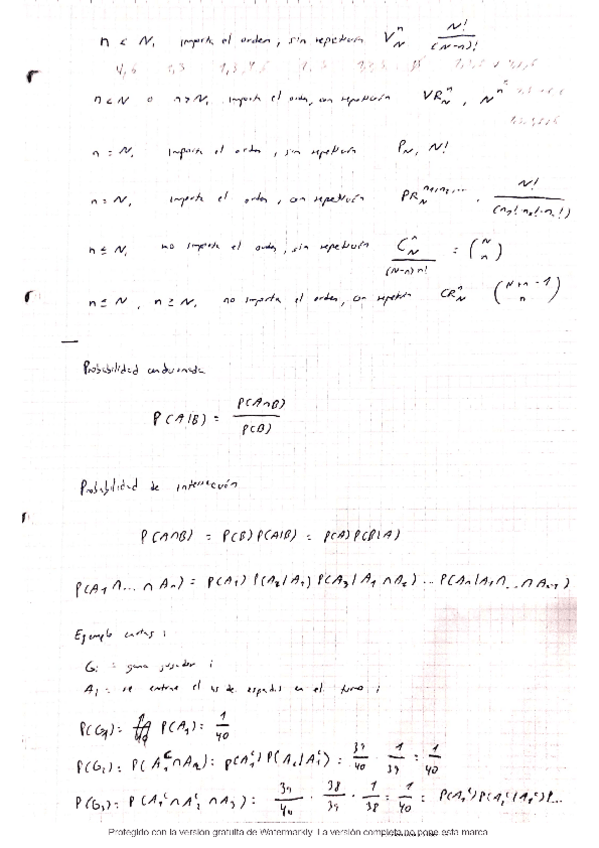 n < N, importa el orden, sin repetición V_N^n N!/(N-n)!
n < N o n > N, importa el orden, con repetición VR_N^n, N^n
n = N, importa el orden, sin repetición P_N, N!
n = N, importa el orden, con repetición PR_N^{n_1, n_2, ...}, N!/(n_1! n_2! ... n_n!)
n ≤ N, no importa el orden, sin repetición C_N^n/(N-n)n! = (N n)
n ≤ N, n ≥ N, no importa el orden, con repetición CR_N^n (N+n-1 n)
Probabilidad condicionada
P(A|B) = P(A∩B)/P(B)
Probabilidad de intersección
P(A∩B) = P(B)P(A|B) = P(A)P(B|A)
P(A_1 ∩ ... ∩ A_n) = P(A_1) P(A_2/A_1) P(A_3/A_1 ∩ A_2) ... P(A_n/A_1∩ ... ∩ A_{n-1})
Ejemplo cartas:
G_i = gana jugador i
A_i = se extrae el as de espadas en el turno i
P(G_1) = P(A_1) = 1/40
P(G_2) = P(A_1^c ∩ A_2) = P(A_1^c) P(A_2/A_1^c) = 39/40 · 1/39 = 1/40
P(G_3) = P(A_1^c ∩ A_2^c ∩ A_3) = 39/40 · 38/39 · 1/38 = 1/40 = P(A_1^c)P(A_2^c/A_1^c)P...
Protegido con la versión gratuita de Watermarkly. La versión completa no pone esta marca